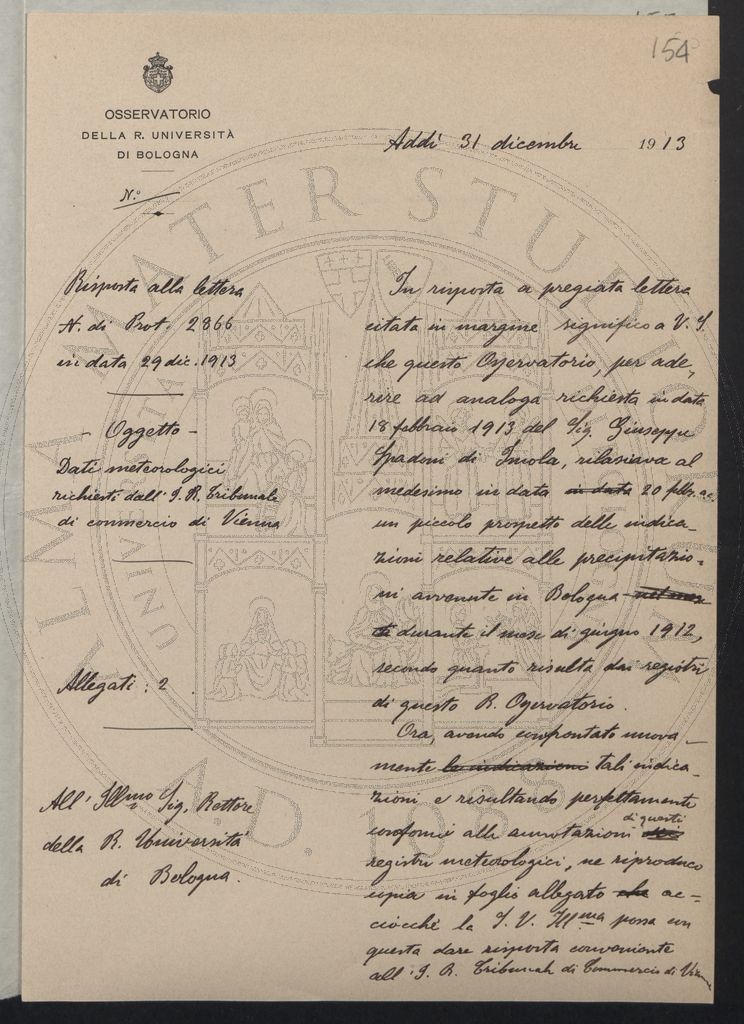 154
OSSERVATORIO
DELLA R. UNIVERSITÀ
DI BOLOGNA
N.º
Addì 31 dicembre 1913
Risposta alla lettera
N. di Prot. 2866
in data 29 dic. 1913
- Oggetto -
Dati meteorologici
richiesti dall'I. R. Tribunale
di commercio di Vienna
Allegati: 2
All' Illmo Sig. Rettore
della R. Università
di Bologna.
In risposta a pregiata lettera
citata in margine significo a V. S.
che questo Osservatorio, per ade-
rire ad analoga richiesta in data
18 febbraio 1913 del Sig. Giuseppe
Spadoni di Imola, rilasciava al
medesimo in data in data 20 febb.
un piccolo prospetto delle indica-
zioni relative alle precipitazio-
ni avvenute in Bologna
durante il mese di giugno 1912,
secondo quanto risulta dai registri
di questo R. Osservatorio.
Ora, avendo confrontato nuova-
mente le indicazioni tali indica-
zioni e risultando perfettamente
conformi alle annotazioni di questi
registri meteorologici, ne riproduco
copia in foglio allegato che ac-
ciocchè la S. V. Illma possa con
questa dare risposta conveniente
all' I. R. Tribunale di Commercio di Vienna
ALMA MATER STUDIORUM
UNIVERSITÀ
A.D. 1088